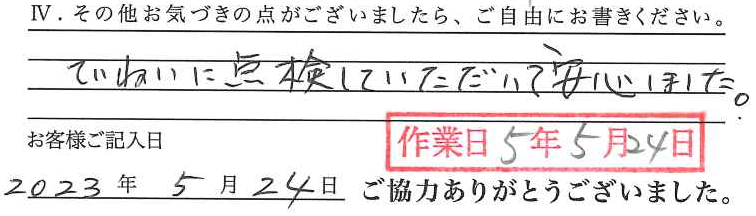 Ⅳ．その他お気づきの点がございましたら、ご自由にお書きください。
ていねいに点検していただいて安心しました。
お客様ご記入日
作業日5年5月24日
2023年5月24日 ご協力ありがとうございました。